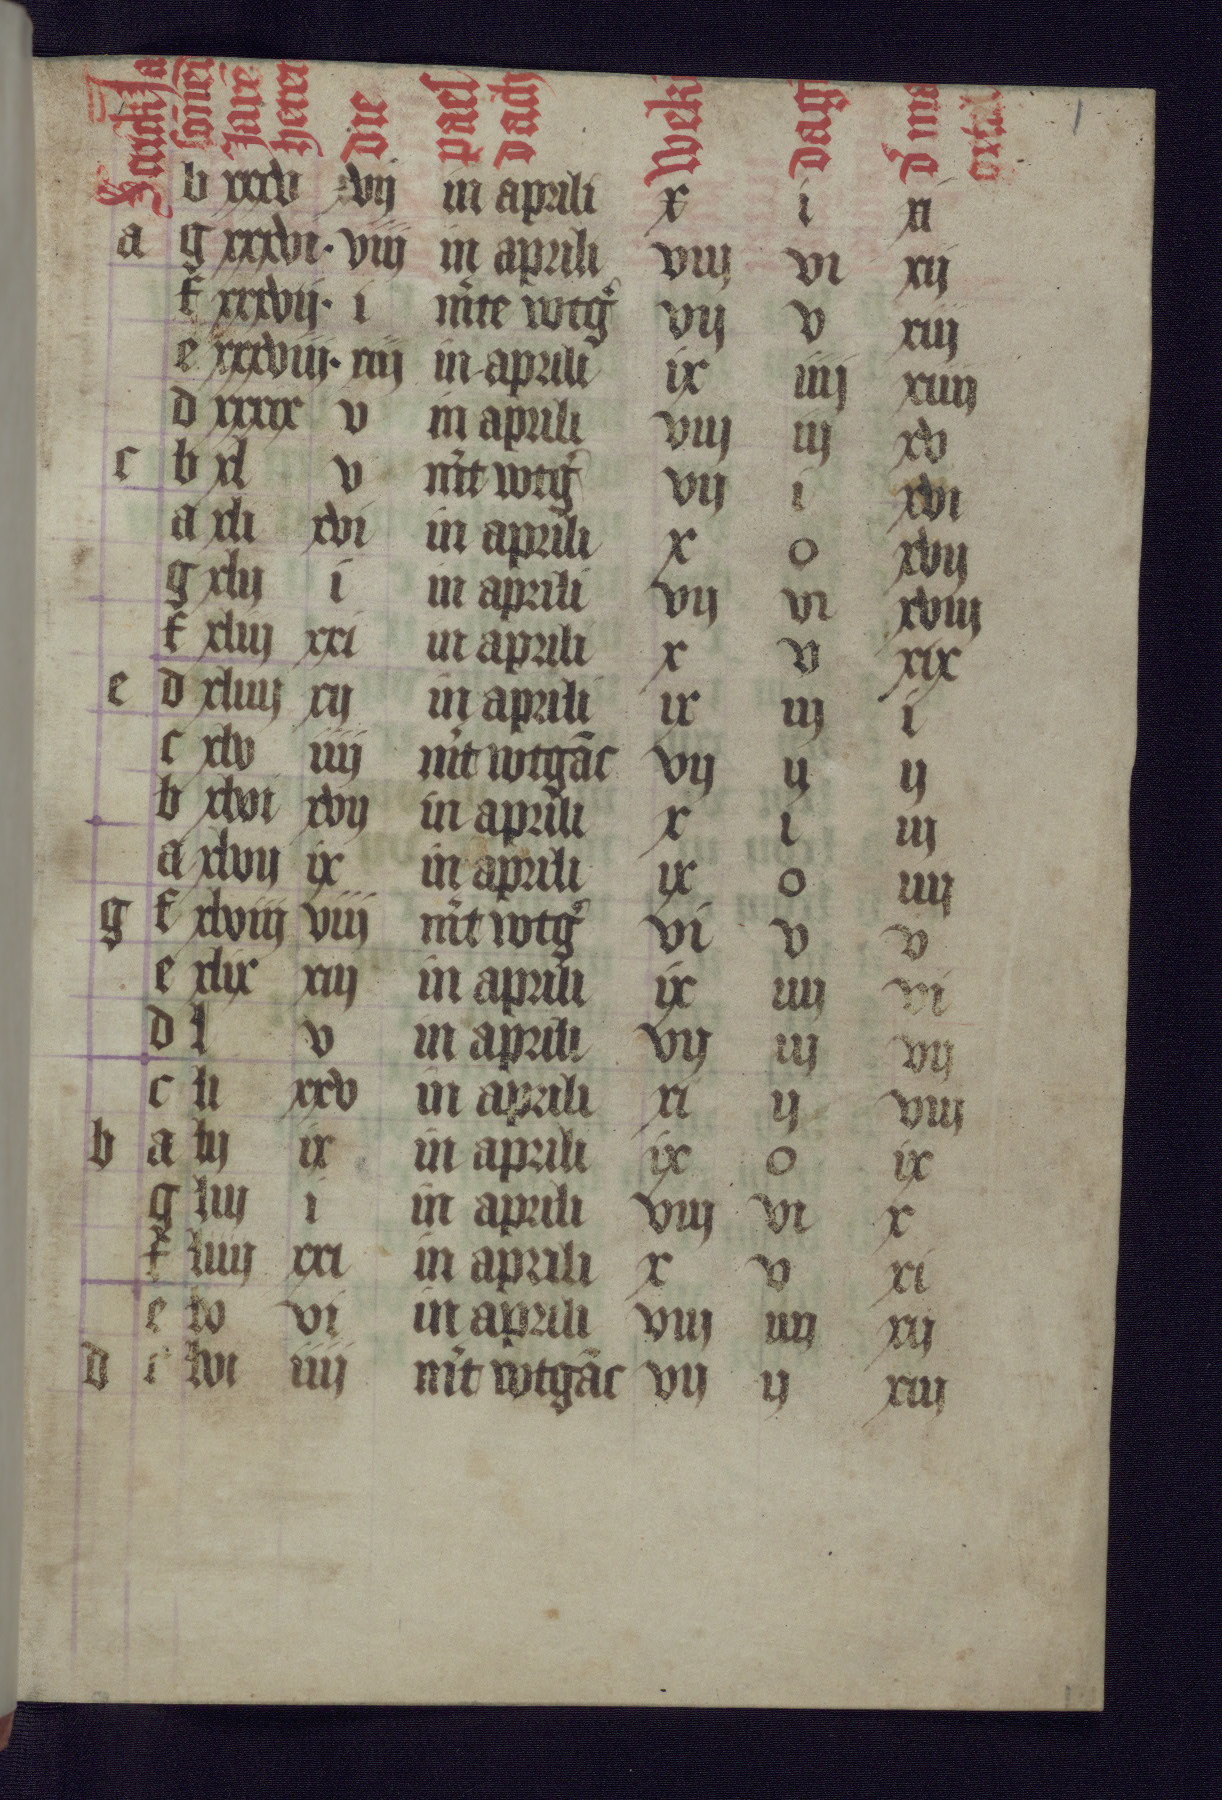 die
pael
dach
b xxxv vij in aprili x i xi
a g xxxvi· viij in aprili viij vi xij
f xxxvij· i mite wtgᷓ vij v xiij
e xxxviij· xiij in aprili ix iiij xiiij
d xxxix v in aprili viij iij xv
c b xl v mit wtgᷓ vij i xvi
a xli xvi in aprili x o xvij
g xlij i in aprili vij vi xviij
f xliij xxi in aprili x v xix
e d xliiij xij in aprili ix iij i
c xlv iiij mit wtgāc vij ij ij
b xlvi xvij in aprili x i iij
a xlvij ix in aprili ix o iiij
g f xlviij viij mit wtgᷓ vi v v
e xlix xiij in aprili ix iiij vi
d l v in aprili vij iij vij
c li xxv in aprili xi ij viij
b a lij ix in aprili ix o ix
g liij i in aprili viij vi x
f liiij xxi in aprili x v xi
e lv vi in aprili viij iiij xij
d c lvi iiij mit wtgāc vij ij xiij